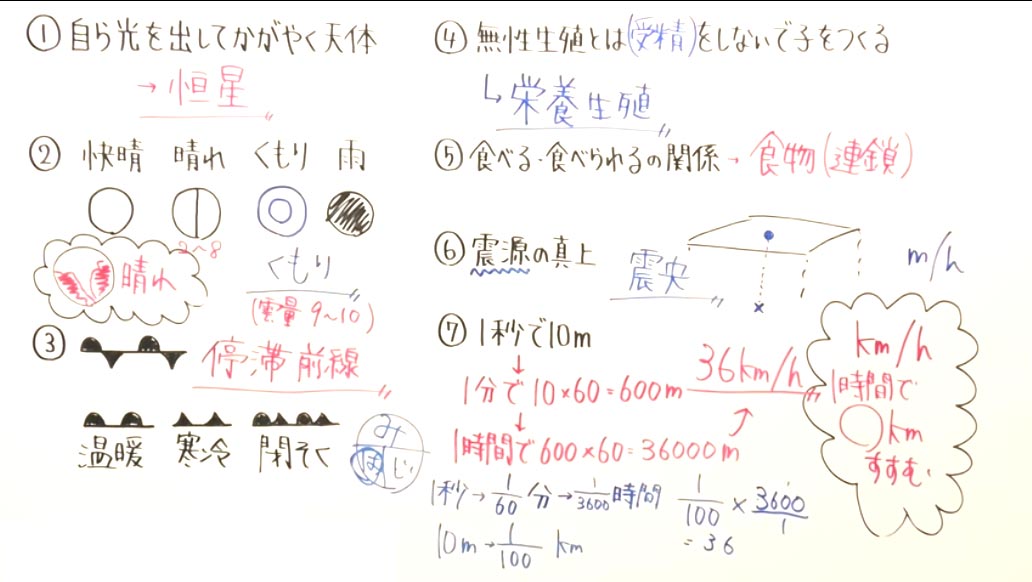 ① 自ら光を出してかがやく天体
→ 恒星
② 快晴 晴れ くもり 雨
2～8
晴れ
くもり
(雲量 9～10)
③ 停滞前線
温暖 寒冷 閉そく
み
は じ
④ 無性生殖とは(受精)をしないで子をつくる
↳ 栄養生殖
⑤ 食べる・食べられるの関係 → 食物(連鎖)
⑥ 震源の真上 震央
×
m/h
⑦ 1秒で10m
↓
1分で 10×60=600m 36km/h
↓
1時間で 600×60=36000m
km/h
1時間で
○km
すすむ
1秒→1/60分→1/3600時間 1/100 × 3600/1
10m→1/100 km =36